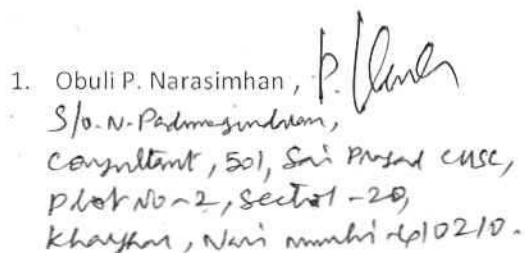 1. Obuli P. Narasimhan,
S/o. N. Padmasundram,
Consultant, 501, Sai Prasad CHSC,
Plot No-2, Sector-20,
Kharghar, Navi mumbai-410210.